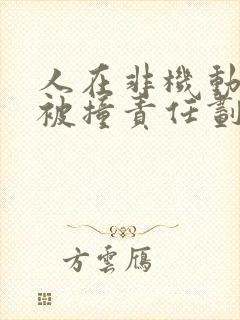 人在非機動
被撞責任劃
方雲雁